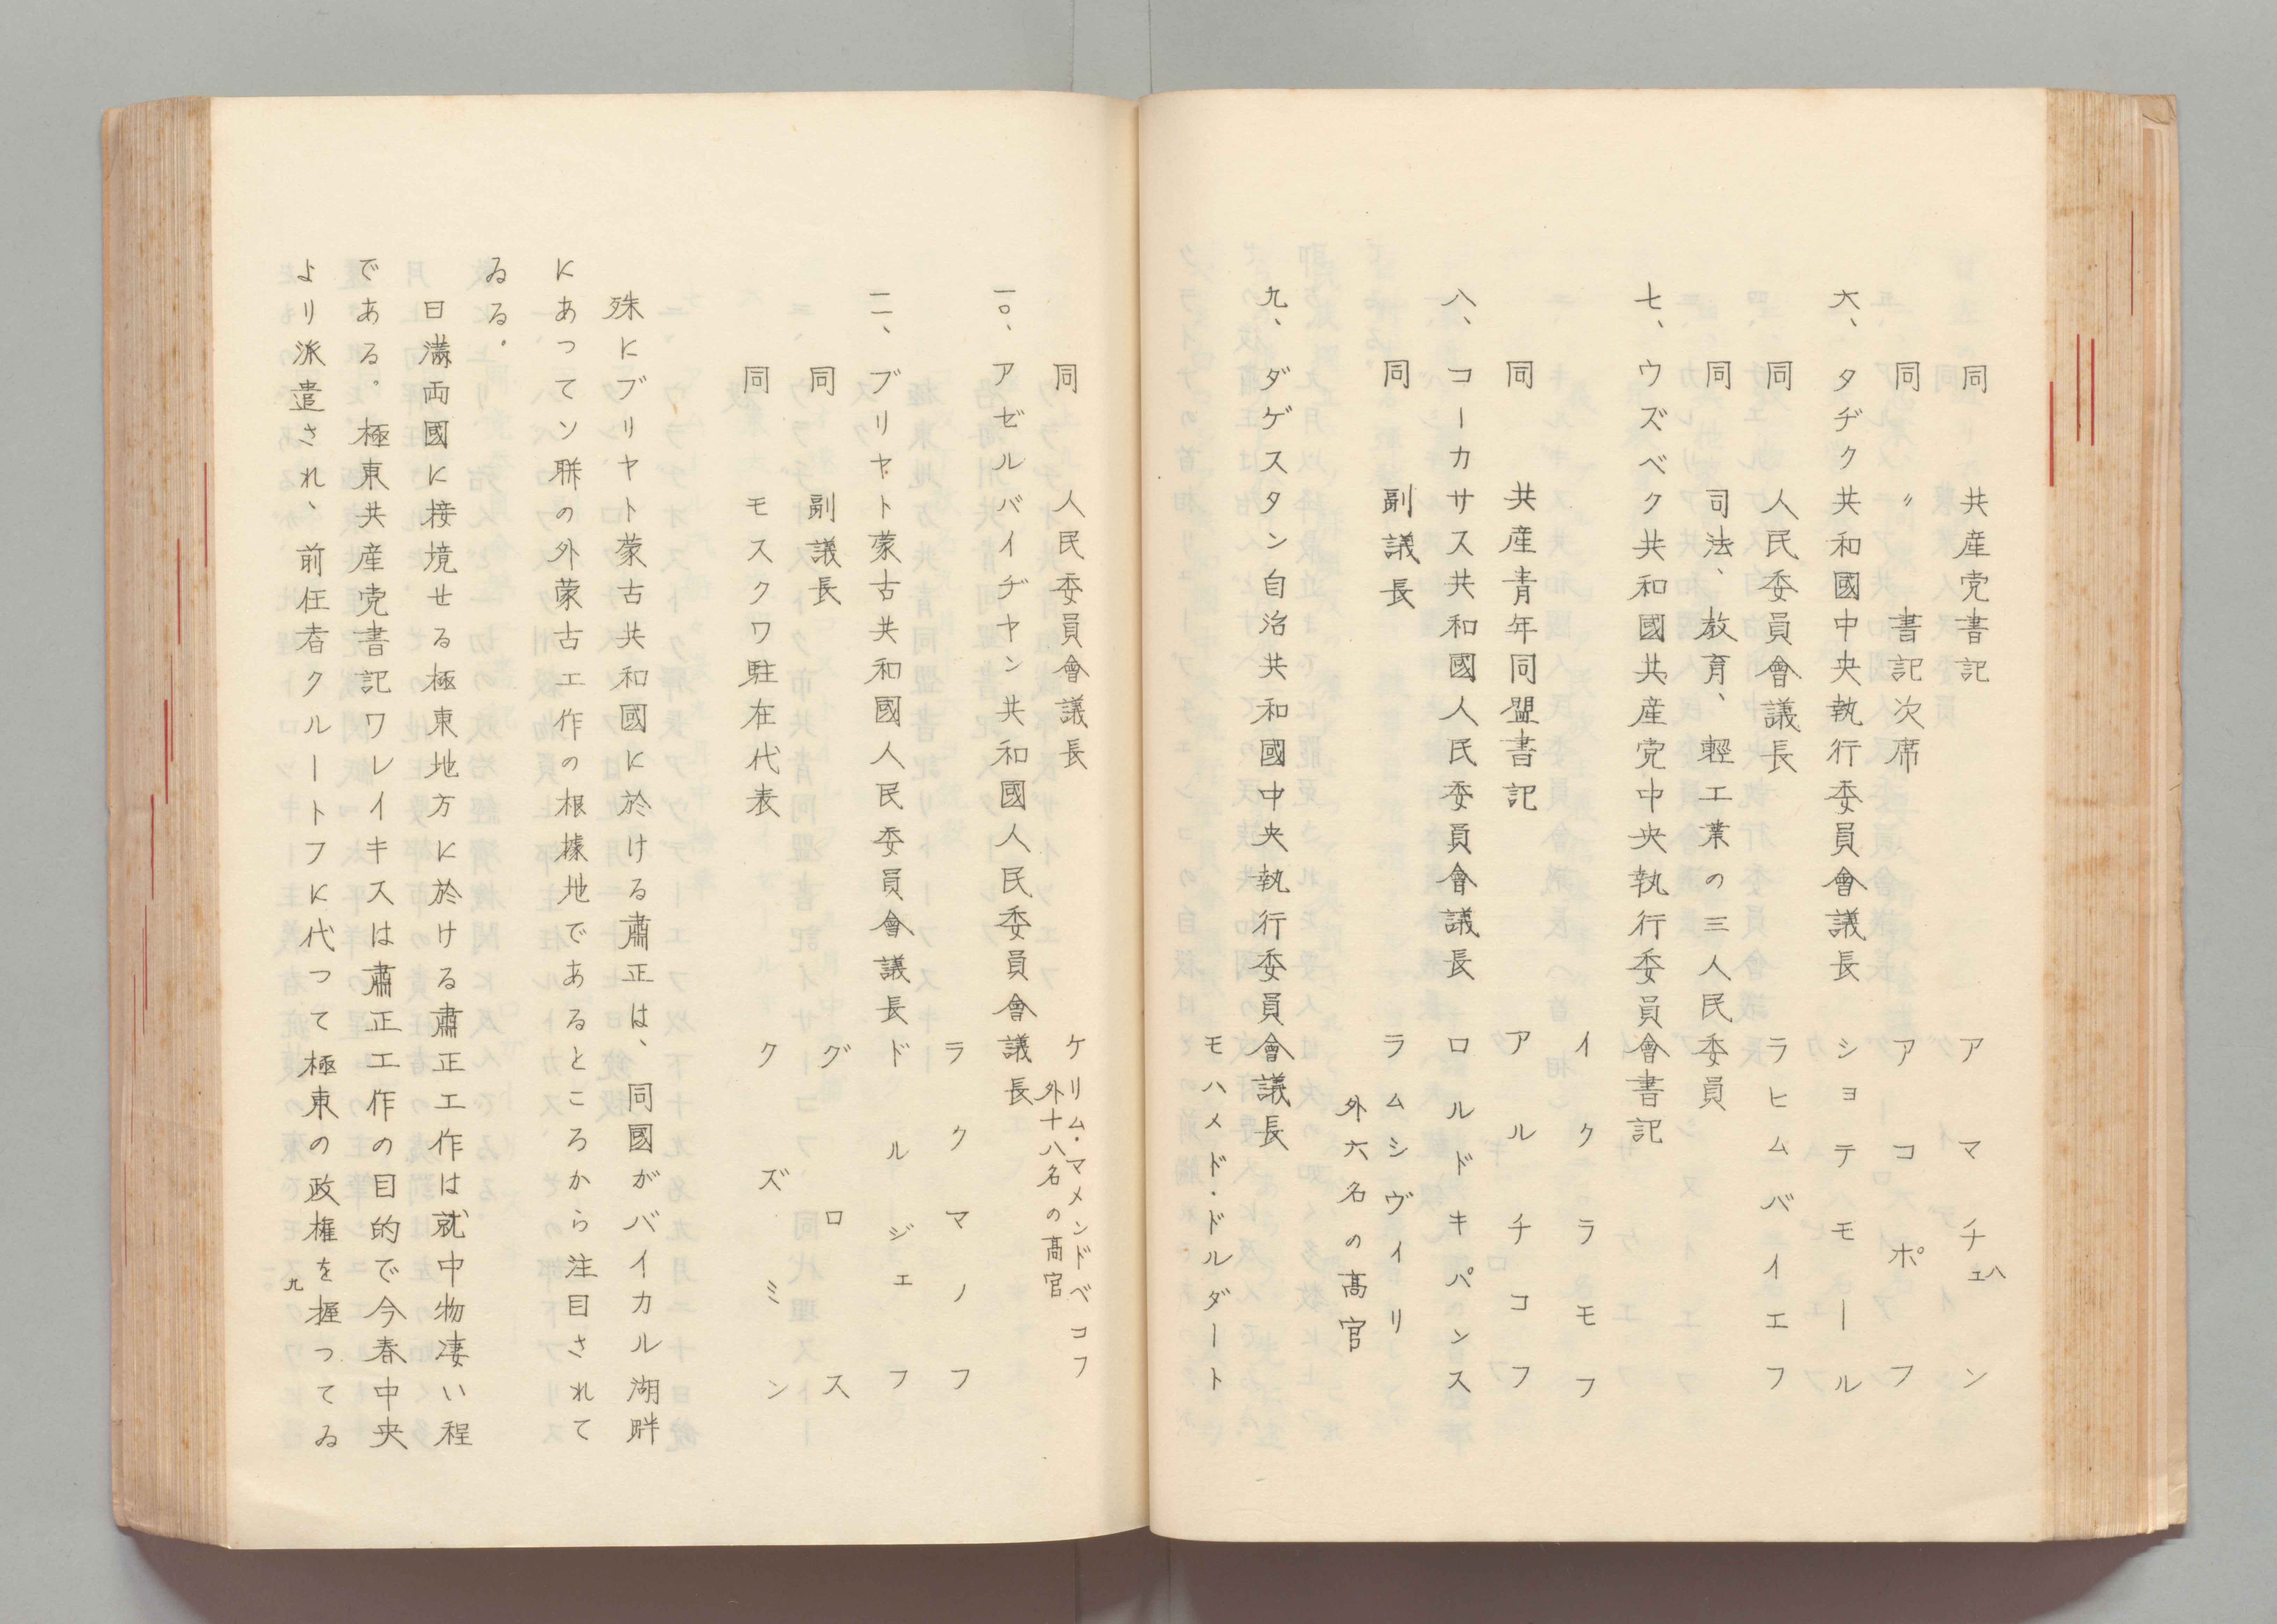 同 共産党書記 アマチェン
同 〃 書記次席 アコポフ
六、タヂク共和國中央執行委員會議長 ショテモール
同 人民委員會議長 ラヒムバイエフ
同 司法、教育、輕工業の三人民委員
七、ウズベク共和國共産党中央執行委員會書記
イクラモフ
同 共産青年同盟書記 アルチコフ
八、コーカサス共和國人民委員會議長 ロルドキパンス
同 副議長 ラムシヴィリ
外六名の高官
九、ダゲスタン自治共和國中央執行委員會議長
モハメド・ドルダート
八
同 人民委員會議長 ケリム・マメンドベコフ
外十八名の高官
一〇、アゼルバイヂヤン共和國人民委員會議長
ラクマノフ
一一、ブリヤト蒙古共和國人民委員會議長 ドルジェフ
同 副議長 グロス
同 モスクワ駐在代表 クズミン
殊にブリヤト蒙古共和國に於ける肅正は、同國がバイカル湖畔
にあつてソ聯の外蒙古工作の根據地であるところから注目されて
ゐる。
日満両國に接境せる極東地方に於ける肅正工作は就中物凄い程
である。極東共産党書記ワレイキスは肅正工作の目的で今春中央
より派遣され、前任者クルートフに代つて極東の政権を握つてゐ
九